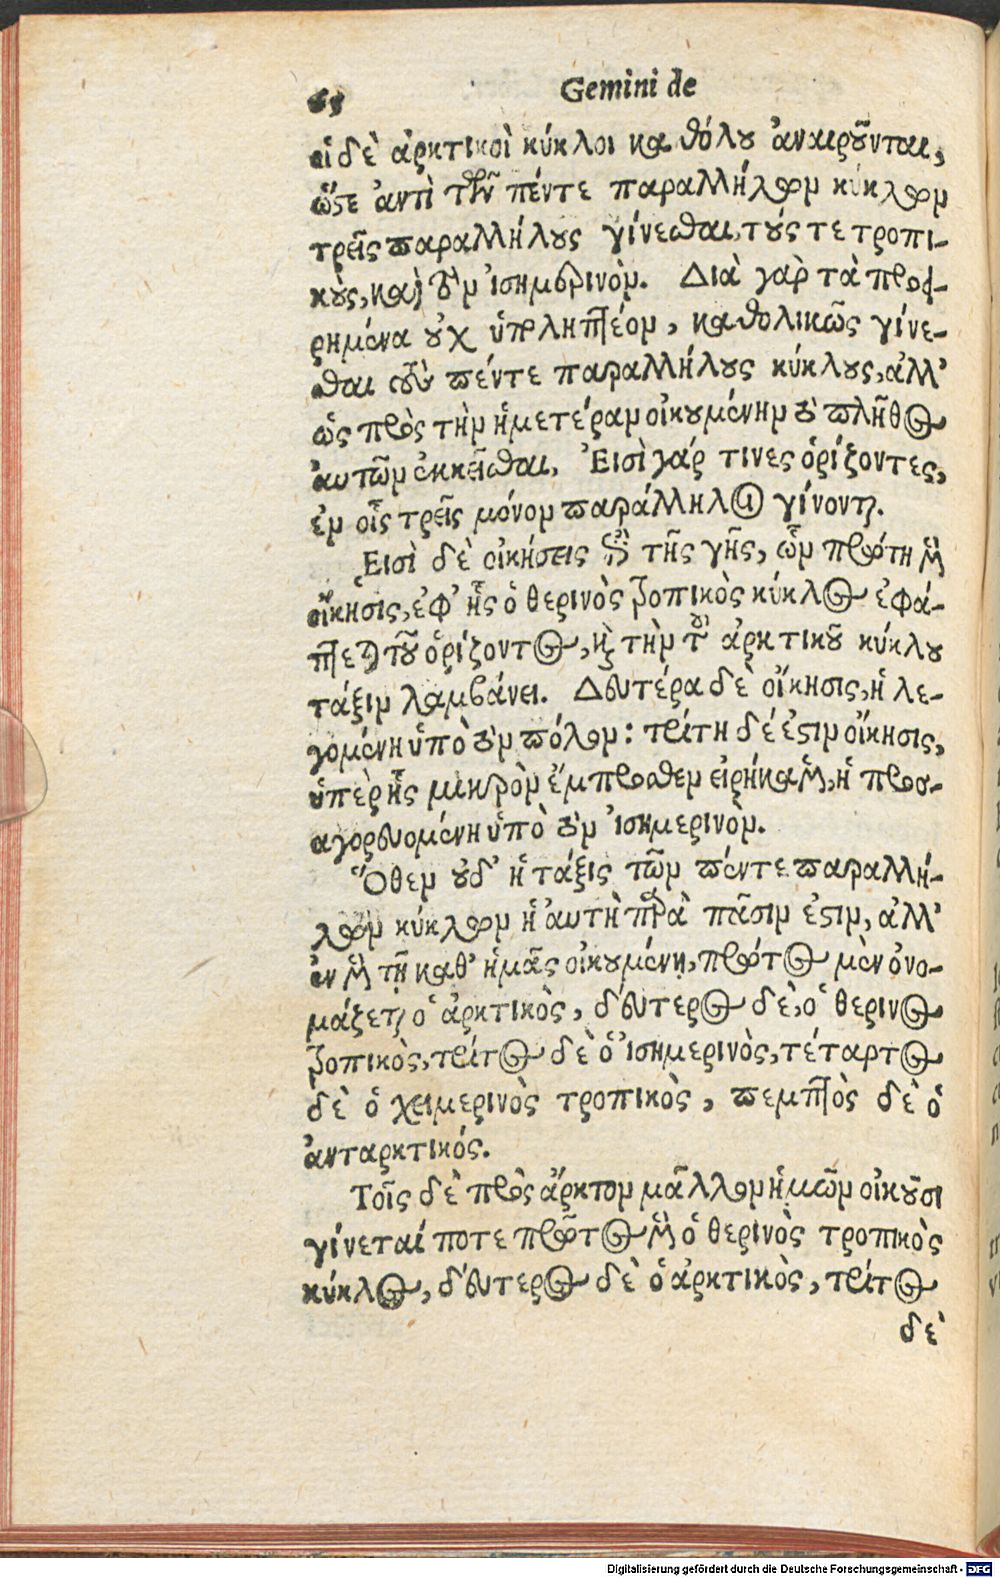 65 Gemini de
οἱ δὲ ἀρκτικοὶ κύκλοι καθόλου ἀναιροῦνται,
ὥστε ἀντὶ τῶν πέντε παραλλήλων κύκλων
τρεῖς παραλλήλους γίνεσθαι, τούς τε τροπι-
κοὺς, καὶ τὸν ἰσημερινὸν. Διὰ γὰρ τὰ προει-
ρημένα οὐχ ὑποληπτέον, καθολικῶς γίνε-
σθαι τοὺς πέντε παραλλήλους κύκλους, ἀλλ'
ὡς πρὸς τὴν ἡμετέραν οἰκουμένην τὸ πλῆθος
αὐτῶν ἐκκεῖσθαι. Ἐισὶ γάρ τινες ὁρίζοντες,
ἐν οἷς τρεῖς μόνον παράλληλοι γίνονται.
Εἰσὶ δὲ οἰκήσεις ἐπὶ τῆς γῆς, ὧν πρώτη μὲν
οἴκησις, ἐφ' ἧς ὁ θερινὸς τροπικὸς κύκλος ἐφά-
πτεται τοῦ ὁρίζοντος, καὶ τὴν τοῦ ἀρκτικοῦ κύκλου
τάξιν λαμβάνει. Δευτέρα δὲ οἴκησις, ἡ λε-
γομένη ὑπὸ τὸν πόλον: τρίτη δέ ἐστιν οἴκησις,
ὑπὲρ ἧς μικρὸν ἔμπροσθεν εἰρήκαμεν, ἡ προσ-
αγορευομένη ὑπὸ τὸν ἰσημερινὸν.
Ὅθεν οὐδ' ἡ τάξις τῶν πέντε παραλλή-
λων κύκλων ἡ αὐτὴ παρὰ πᾶσιν ἐστιν, ἀλλ'
ἐν μὲν τῇ καθ' ἡμᾶς οἰκουμένῃ, πρῶτος μὲν ὀνο-
μάζεται ὁ ἀρκτικὸς, δεύτερος δὲ, ὁ θερινος
τροπικὸς, τρίτος δὲ ὁ ἰσημερινὸς, τέταρτος
δὲ ὁ χειμερινὸς τροπικὸς, πεμπτὸς δὲ ὁ
ἀνταρκτικός.
Τοῖς δὲ πρὸς ἄρκτον μᾶλλον ἡμῶν οἰκοῦσι
γίνεταί ποτε πρῶτος μὲν ὁ θερινὸς τροπικὸς
κύκλος, δεύτερος δὲ ὁ ἀρκτικὸς, τρίτος
δὲ
Digitalisierung gefördert durch die Deutsche Forschungsgemeinschaft - DFG